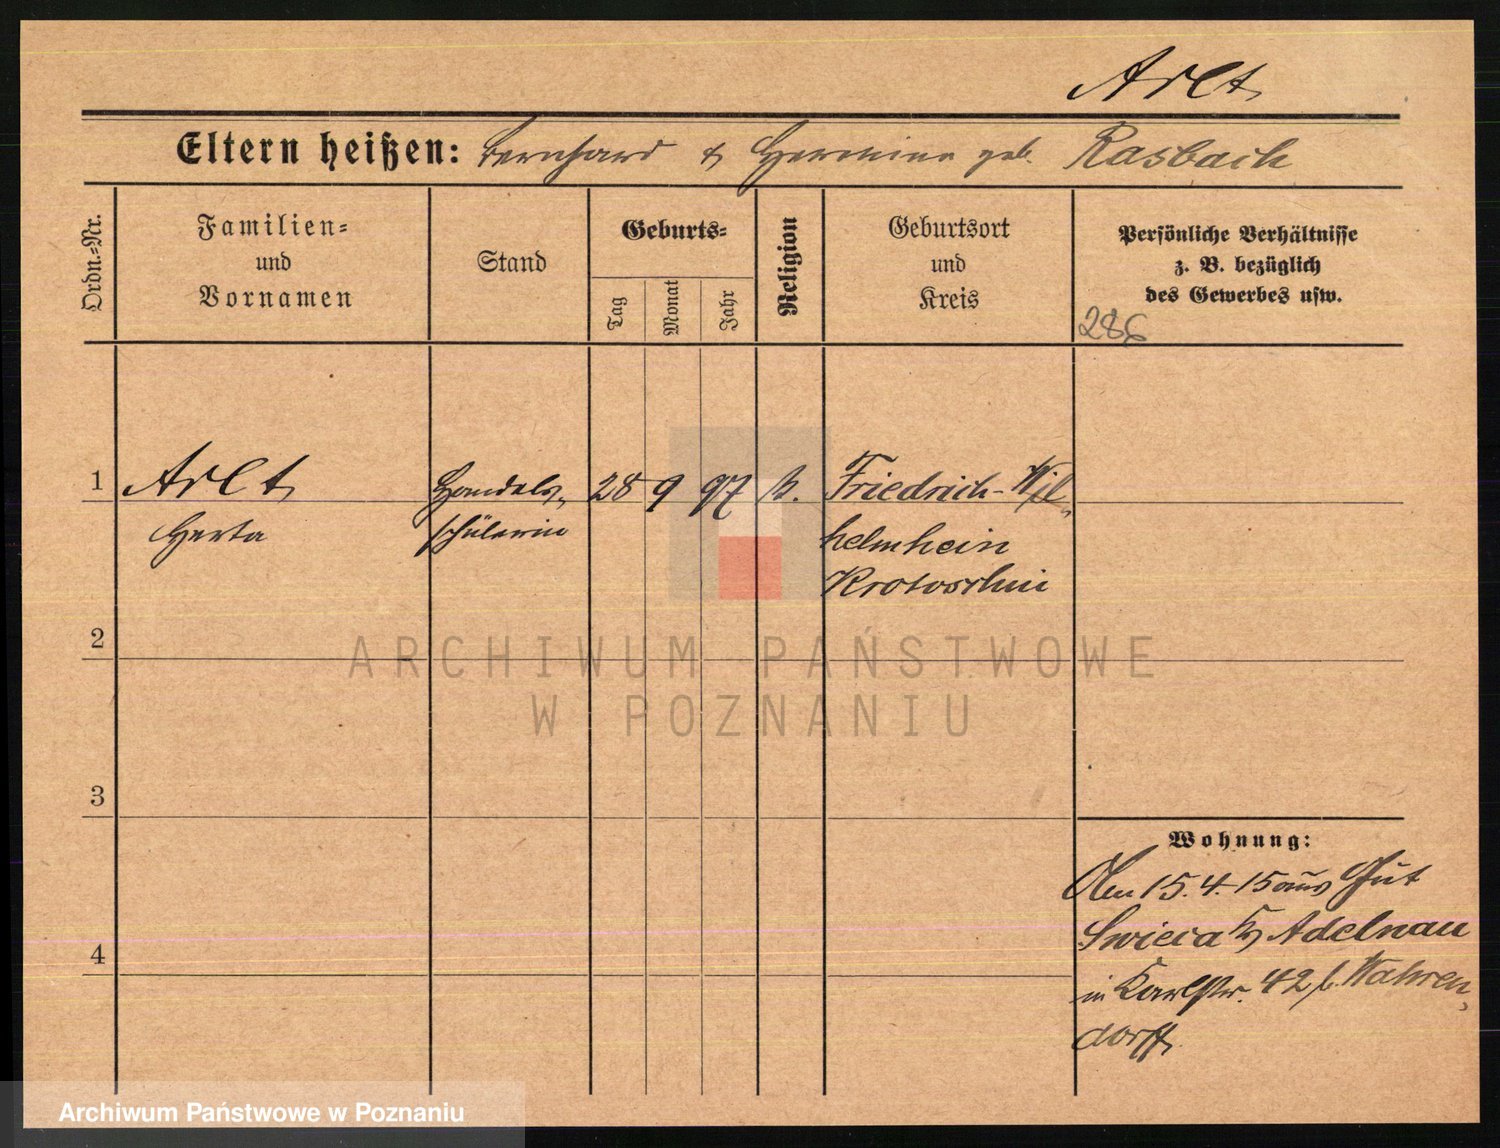 Arlt
Eltern heißen: Bernhard & Hermine geb. Rasbach
Ordn.-Nr.
Familien-
und
Vornamen
Stand
Geburts-
Tag
Monat
Jahr
Religion
Geburtsort
und
Kreis
Persönliche Verhältnisse
z. B. bezüglich
des Gewerbes usw.
286
1
Arlt
Herta
Handels-
schülerin
28 9 97
Friedrich-Wil-
helmhein
Krotoschin
2
3
4
Wohnung:
Am 15.4.15 aus Gut
Swieca Kr Adelnau
in Karlstr. 42 b. Wahren-
dorff
ARCHIWUM PAŃSTWOWE
W POZNANIU
Archiwum Państwowe w Poznaniu